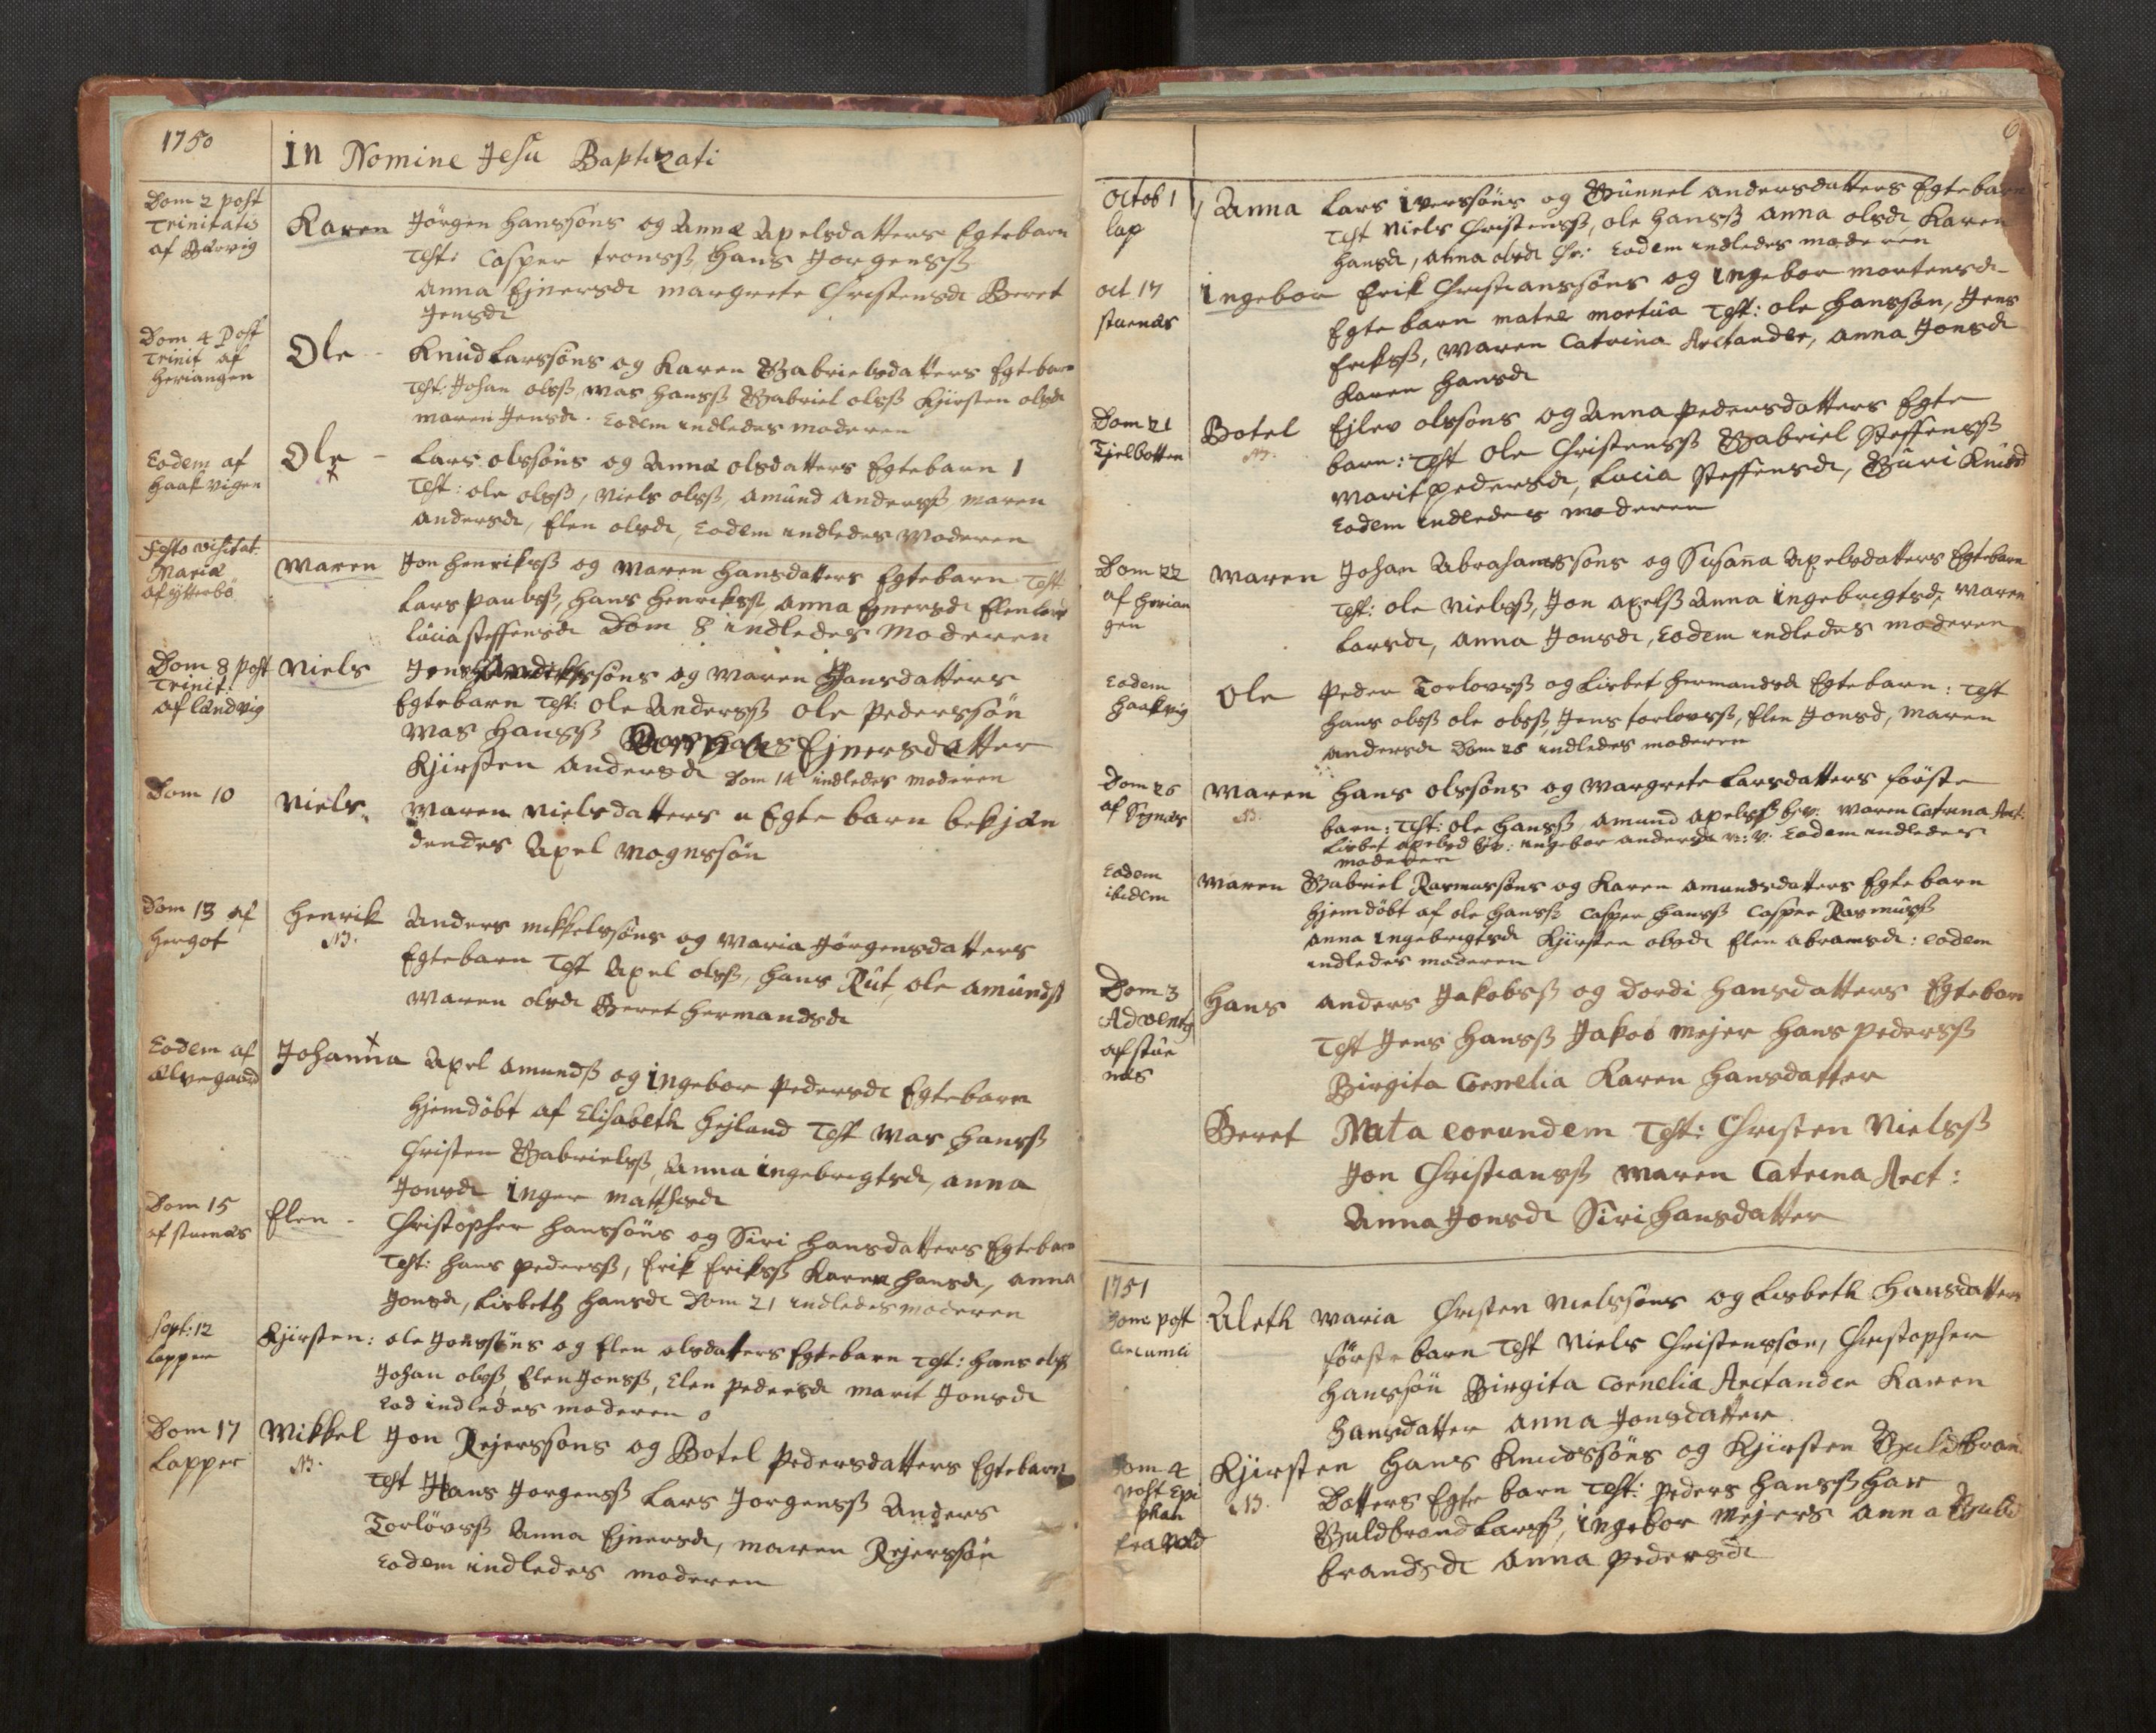 1750
in Nomine Jesu Baptizati
Dom 2 post
Trinitatis
af
Karen
Jörgen Hanssöns og Anna Axelsdatters Egtebarn
Test: Casper tronss, Hans Jörgenss
Anna Ejnersd margrete Christensd Beret
Jensd
Dom 4 post
Trinit af
Heriangen
Ole
Knud Larssöns og Karen Gabrielsdatters Egtebarn
Test: Johan olss, Mas Hanss Gabriel olss Kjirsten olsd
maren Jensd. Eodem indledes moderen
Eodem af
Haakvigen
Ole
Lars olssöns og Anna olsdatters Egtebarn
Test: ole olss, Niels olss, Amund Anderss maren
Andersd, Elen olsd, Eodem indledes Moderen
Festo visitat
Mariæ
af ytterbö
Maren
Jon Henrikss og Maren Hansdatters Egtebarn Test:
Lars paulss, Hans Henrikss, Anna Ejnersd Elen
Lucia steffensd Dom 8 indledes Moderen
Dom 8 post
Trinit:
af landvig
Niels
Jens Hendrikssöns og Maren Hansdatters
Egtebarn Test: Ole Anderss Ole Pederssön
Mas Hanss Ejnersdatter
Kjirsten Andersd Dom 14 indledes moderen
Dom 10
Niels
Maren Nielsdatters u Egte barn bekjæn
dendes Axel Mognssön
Dom 13 af
Hergot
Henrik
NB.
Anders Mikkelssöns og Maria Jörgensdatters
Egtebarn Test Axel olss, Hans Rut, ole Amundss
Maren olsd Beret Hermandsd
Eodem af
Elvegaard
Johanna
Axel Amundss og Ingebor Pedersd Egtebarn
Hjemdöbt af Elisabeth Hejland Test Mas Hanss
Christen Gabrielss, Anna Ingebrigtsd, Anna
Jonsd Inger Matthisd
Dom 15
af stuenæs
Elen
Christopher Hanssöns og Siri Hansdatters Egtebarn
Test: Hans Pederss, Erik Erikss Karen Hansd, Anna
Jonsd, Lisbeth Hansd Dom 21 indledes moderen
Sept: 12
Lapper
Kjirsten:
ole Jonssöns og Elen olsdatters Egtebarn Test: Hans olss
Johan olss, Elen Jonss, Elen Pedersd Marit Jonsd
Eod indledes moderen
Dom 17
Lapper
Mikkel
NB.
Jon Rejerssöns og Botel Pedersdatters Egtebarn
Test Hans Jorgenss Lars Jorgenss Anders
Torlövss Anna Ejnersd, Maren Rejerssön
Eodem indledes moderen
6
Octob 1
lap
Anna
Lars Iverssöns og Gunnel Andersdatters Egtebarn
Test Niels Christenss, ole Hanss Anna olsd, Karen
Hansd, Anna olsd Chr: Eodem indledes moderen
oct 17
stuenæs
Ingebor
Erik Christianssöns og Ingebor mortensd
Egtebarn matre mortua Test: ole Hanssön, Jens
Erikss, Maren Catrina Arctander, Anna Jonsd
Karen Hansd
Dom 21
Tjelbotten
Botel
NB.
Ejlev olssöns og Anna Pedersdatters Egte
barn: Test Ole Christenss Gabriel Steffenss
Marit Pedersd, Lucia Steffensd, Guri Knudsd
Eodem indledes moderen
Dom 22
af Herian
gen
Maren
Johan Abrahamssöns og Susanna Axelsdatters Egtebarn
Test: ole Nielss, Jon Axelss Anna Ingebrigtsd, Maren
Larsd, Anna Jonsd, Eodem indledes moderen
Eodem
Haakvig
Ole
Peder Torlovss og Lisbet Hermandsd Egtebarn: Test
Hans olss ole olss, Jens torlovss, Elen Jonsd, Maren
Andersd Dom 26 indledes moderen
Dom 26
af Segnæs
Maren
NB.
Hans olssöns og Margrete Larsdatters förste
barn: Test: ole Hanss Amund Axelss Maren Catrina Arct:
Lisbet Axelsd Ingebor Andersd Eodem indledes
moderen
Eodem
ibidem
Maren
Gabriel Rasmussöns og Karen Amundsdatters Egte barn
Hjemdöbt af ole Hanss Casper Hanss Casper Rasmuss
Anna Ingebrigtsd Kjirsten olsd Elen Abramsd: eodem
indledes moderen
Dom 3
Advents
af stue
næs
Hans
Anders Jakobss og Dordi Hansdatters Egtebarn
Test Jens Hanss Jakob Mejer Hans Pederss
Birgita Cornelia Karen Hansdatter
Beret
Nata eorundem Test: Christen Nielss
Jon Christianss Maren Catrina Arct:
Anna Jonsd Siri Hansdatter
1751
Dom post
Circumci
Aleth Maria
Christen Nielssöns og Lisbeth Hansdatters
förste barn Test Niels Christenssön, Christopher
Hanssön Birgita Cornelia Arctander Karen
Hansdatter Anna Jonsdatter
Dom 4
post Epi
phan
fra Vold
Kjirsten
NB.
Hans Knudssöns og Kjirsten Guldbran
Datters Egte barn Test: Peder Hanss Har
Guldbrand Larss, Ingebor Mejers Anna Guld
brandsd Anna Pedersd